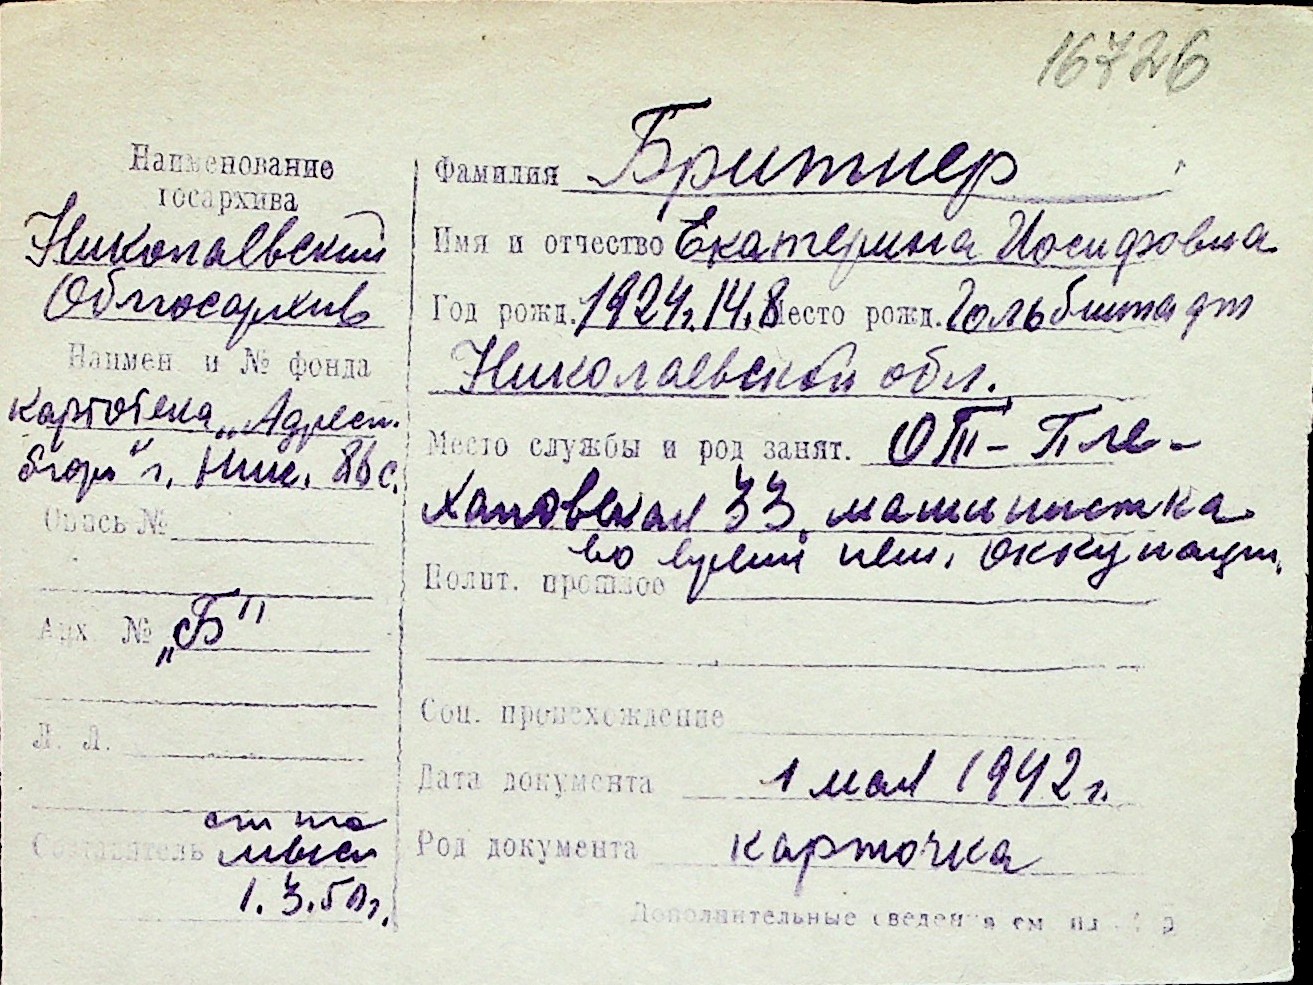 16726
Наименование
госархива
Николаевский
Облгосархив
Наимен и № фонда
Картотека „Адресн.
бюро" г. Ник. 86 с.
Опись №
Арх №
„Б"
Л. Л.
Составитель
1.3.50 г.
Фамилия Бритнер
Имя и отчество Екатерина Иосифовна
Год рожд. 1924 г. 14.8 Место рожд. Гольбштадт
Николаевской обл.
Место службы и род занят. ОТ - Пле-
хановская 33, машинистка
во время нем. оккупации.
Полит. прошлое
Соц. происхождение
Дата документа 1 мая 1942 г.
Род документа карточка
Дополнительные сведения см на